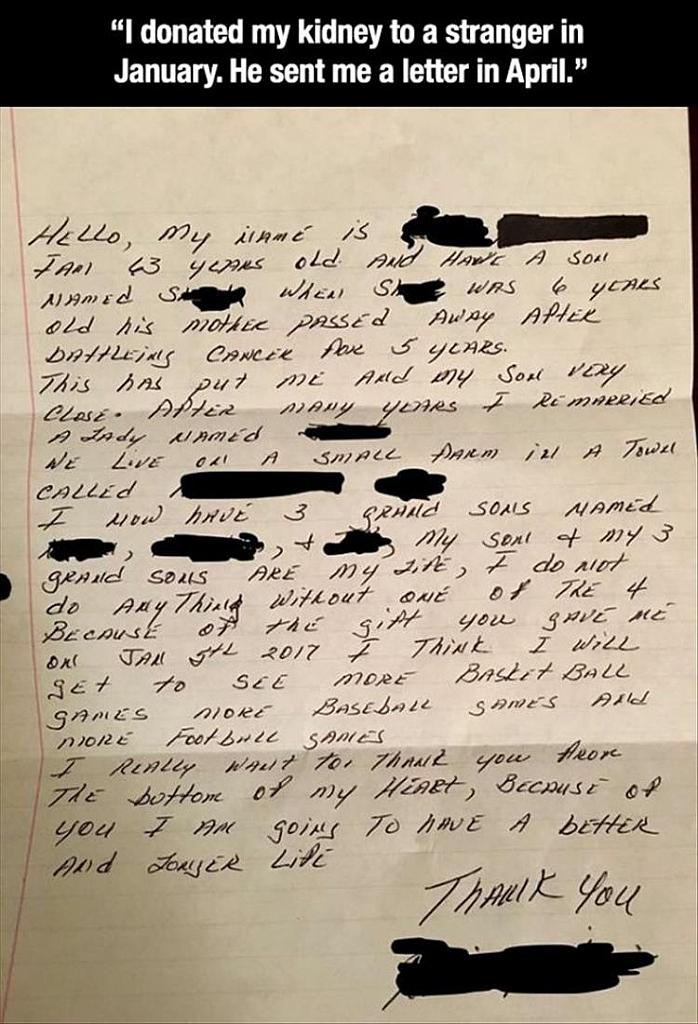 “I donated my kidney to a stranger in
January. He sent me a letter in April.”
HELLO, My NAME is
I am 63 years old AND HAVE A SON
NAMED S WHEN S WAS 6 years
old his mother passed AWAY AFTER
battleing CANCER for 5 years.
This has put me AND my Son very
Close. After many years I remarried
A Lady NAMED
We Live on A small farm in a Town
called
I now have 3 grand sons named
, , + , My son + my 3
grand sons are my Life, I do not
do AnyThing without one of The 4
Because of the gift you gave me
on Jan 5th 2017 I Think I will
get to see more Basket Ball
games more Baseball games and
more Football games
I really want to, Thank you from
The bottom of my Heart, Because of
you I am going To have a better
And Longer Life
Thank You